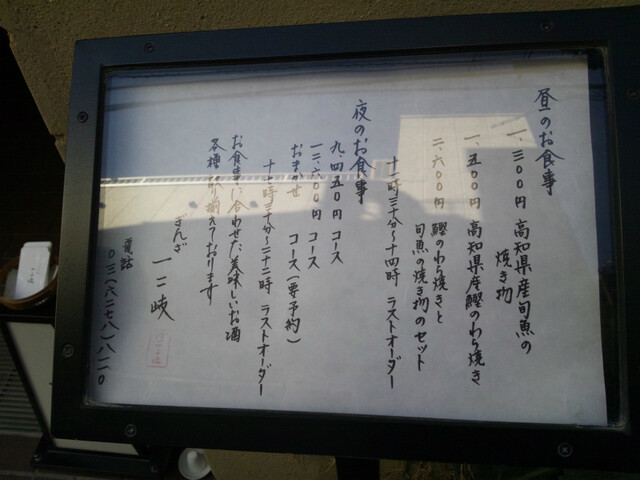 昼のお食事
一、三〇〇円 高知県産旬魚の
焼き物
一、五〇〇円 高知県産鰹のわら焼き
二、六〇〇円 鰹のわら焼きと
旬魚の焼き物のセット
十一時三十分〜十四時 ラストオーダー
夜のお食事
九、四五〇円 コース
一二、六〇〇円 コース
おまかせ コース（要予約）
十七時三十分〜二十二時 ラストオーダー
お食事に合わせた美味しいお酒
各種取り揃えております
ぎんざ 一二岐
電話
〇三（六二七八）八一一〇